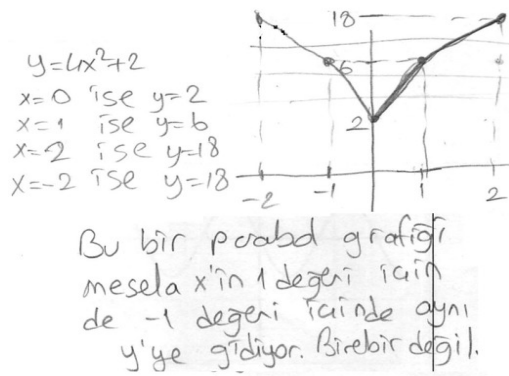 y=4x²+2
x=0 ise y=2
x=1 ise y=6
x=2 ise y=18
x=-2 ise y=18
18
6
2
-2 -1 1 2
Bu bir parabol grafiği
mesela x'in 1 değeri için
de -1 değeri içinde aynı
y'ye gidiyor. Birebir değil.